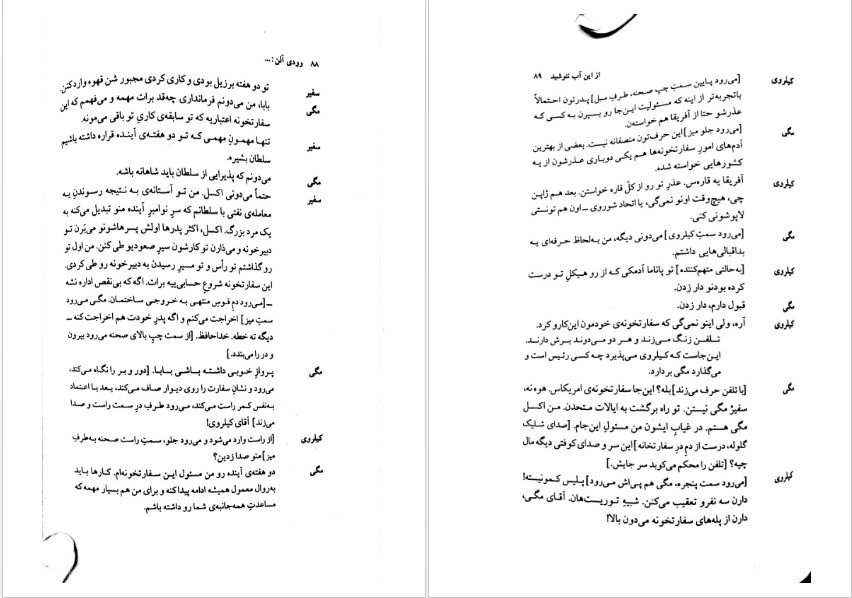 ۸۸ وودی آلن: ...
تو دو هفته برزیل بودی و کاری کردی مجبور شن قهوه وارد کنن.
سفیر بابا، من می‌دونم فرمانداری چه‌قد برات مهمه و می‌فهمم که این
مگی سفارتخونه اعتباریه که تو سابقه‌ی کاری تو باقی می‌مونه.
سفیر تنها مهمونِ مهمی که تو دو هفته‌ی آینده قراره داشته باشیم
سلطان بشیره.
مگی می‌دونم که پذیرایی از سلطان باید شاهانه باشه.
سفیر حتماً می‌دونی اکسل. من تو آستانه‌ی به نتیجه رسوندنِ یه
معامله‌ی نفتی با سلطانم که سرِ نوامبرِ آینده منو تبدیل می‌کنه به
یک مرد بزرگ. اکسل، اکثر پدرها اولش پسرهاشونو می‌بَرن تو
دبیرخونه و می‌ذارن تو کارشون سیرِ صعودیو طی کنن. من اول تو
رو گذاشتم تو رأس و تو مسیرِ رسیدن به دبیرخونه رو طی کردی.
این سفارتخونه شروعِ حسابی‌ییه برات. اگه که بی‌نقص اداره نشه
ـ [می‌رود دمِ قوسِ منتهی به خروجیِ ساختمان. مگی می‌رود
سمتِ میز] اخراجت می‌کنم و اگه پدرِ خودت هم اخراجت کنه ـ
دیگه ته خطه. خداحافظ. [از سمت چپِ بالای صحنه می‌رود بیرون
و در را می‌بندد.]
مگی پروازِ خوبی داشته باشی بابا. [دور و بر را نگاه می‌کند،
می‌رود و نشانِ سفارت را روی دیوار صاف می‌کند، بعد با اعتماد
به‌نفس کمر راست می‌کند، می‌رود طرفِ درِ سمت راست و صدا
می‌زند] آقای کیلروی!
کیلروی [از راست وارد می‌شود و می‌رود جلو، سمتِ راستِ صحنه به‌طرفِ
میز] منو صدا زدین؟
مگی دو هفته‌ی آینده رو من مسئول این سفارتخونه‌ام. کارها باید
به‌روالِ معمولِ همیشه ادامه پیدا کنه و برای من هم بسیار مهمه که
مساعدتِ همه‌جانبه‌ی شما رو داشته باشم.
از این آب ننوشید ۸۹
کیلروی [می‌رود پایین سمتِ چپِ صحنه، طرفِ مبل] پدرتون احتمالاً
باتجربه‌تر از اینه که مسئولیت این‌جا رو بسپرن به کسی که
عذرشو حتا از آفریقا هم خواسته‌ن.
مگی [می‌رود جلو میز] این حرف‌تون منصفانه نیست. بعضی از بهترین
آدم‌های امورِ سفارتخونه‌ها هم یکی دوباری عذرشون از یه
کشورهایی خواسته شده.
کیلروی آفریقا یه قاره‌س. عذرِ تو رو از کلّ قاره خواستن. بعد هم ژاپن
چی، هیچ‌وقت اونو نمی‌گی، یا اتحاد شوروی ـ اون هم نونستی
لاپوشونی کنی.
مگی [می‌رود سمتِ کیلروی] می‌دونی دیگه، من به‌لحاظ حرفه‌ای یه
بداقبالی‌هایی داشتم.
کیلروی [به‌حالتی متهم‌کننده] تو پاناما آدمکی که از رو هیکلِ تو درست
کرده بودنو دار زدن.
مگی قبول دارم، دار زدن.
کیلروی آره، ولی اینو نمی‌گی که سفارتخونه‌ی خودمون این‌کارو کرد.
تلفن زنگ می‌زند و هر دو می‌دوند برش دارند.
این‌جاست که کیلروی می‌پذیرد چه کسی رئیس است و
می‌گذارد مگی بردارد.
مگی [با تلفن حرف می‌زند] بله؟ این‌جا سفارتخونه‌ی امریکاس. هوه نه،
سفیرْ مگی نیستن. تو راه برگشت به ایالات متحدن. من اکسل
مگی هستم. در غیابِ ایشون من مسئولِ این‌جام. [صدای شلیک
گلوله، درست از دمِ درِ سفارتخانه] این سر و صدای کوفتی دیگه مال
چیه؟ [تلفن را محکم می‌کوبد سر جایش.]
کیلروی [می‌رود سمت پنجره، مگی هم پی‌اش می‌رود] پلیسِ کمونیسته!
دارن سه نفرو تعقیب می‌کنن. شبیهِ توریست‌هان. آقای مگی،
دارن از پله‌های سفارتخونه می‌دون بالا!